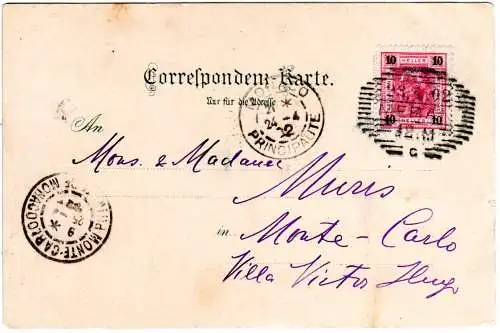 10 HELLER 10
10 10
Correspondenz-Karte.
Nur für die Adresse
An
Mons. & Madame
Muris
in Monte-Carlo
Villa Victor Hugo
MONACO
PRINCIPAUTÉ
MONTE-CARLO
PRINCIPTE DE MONACO
G